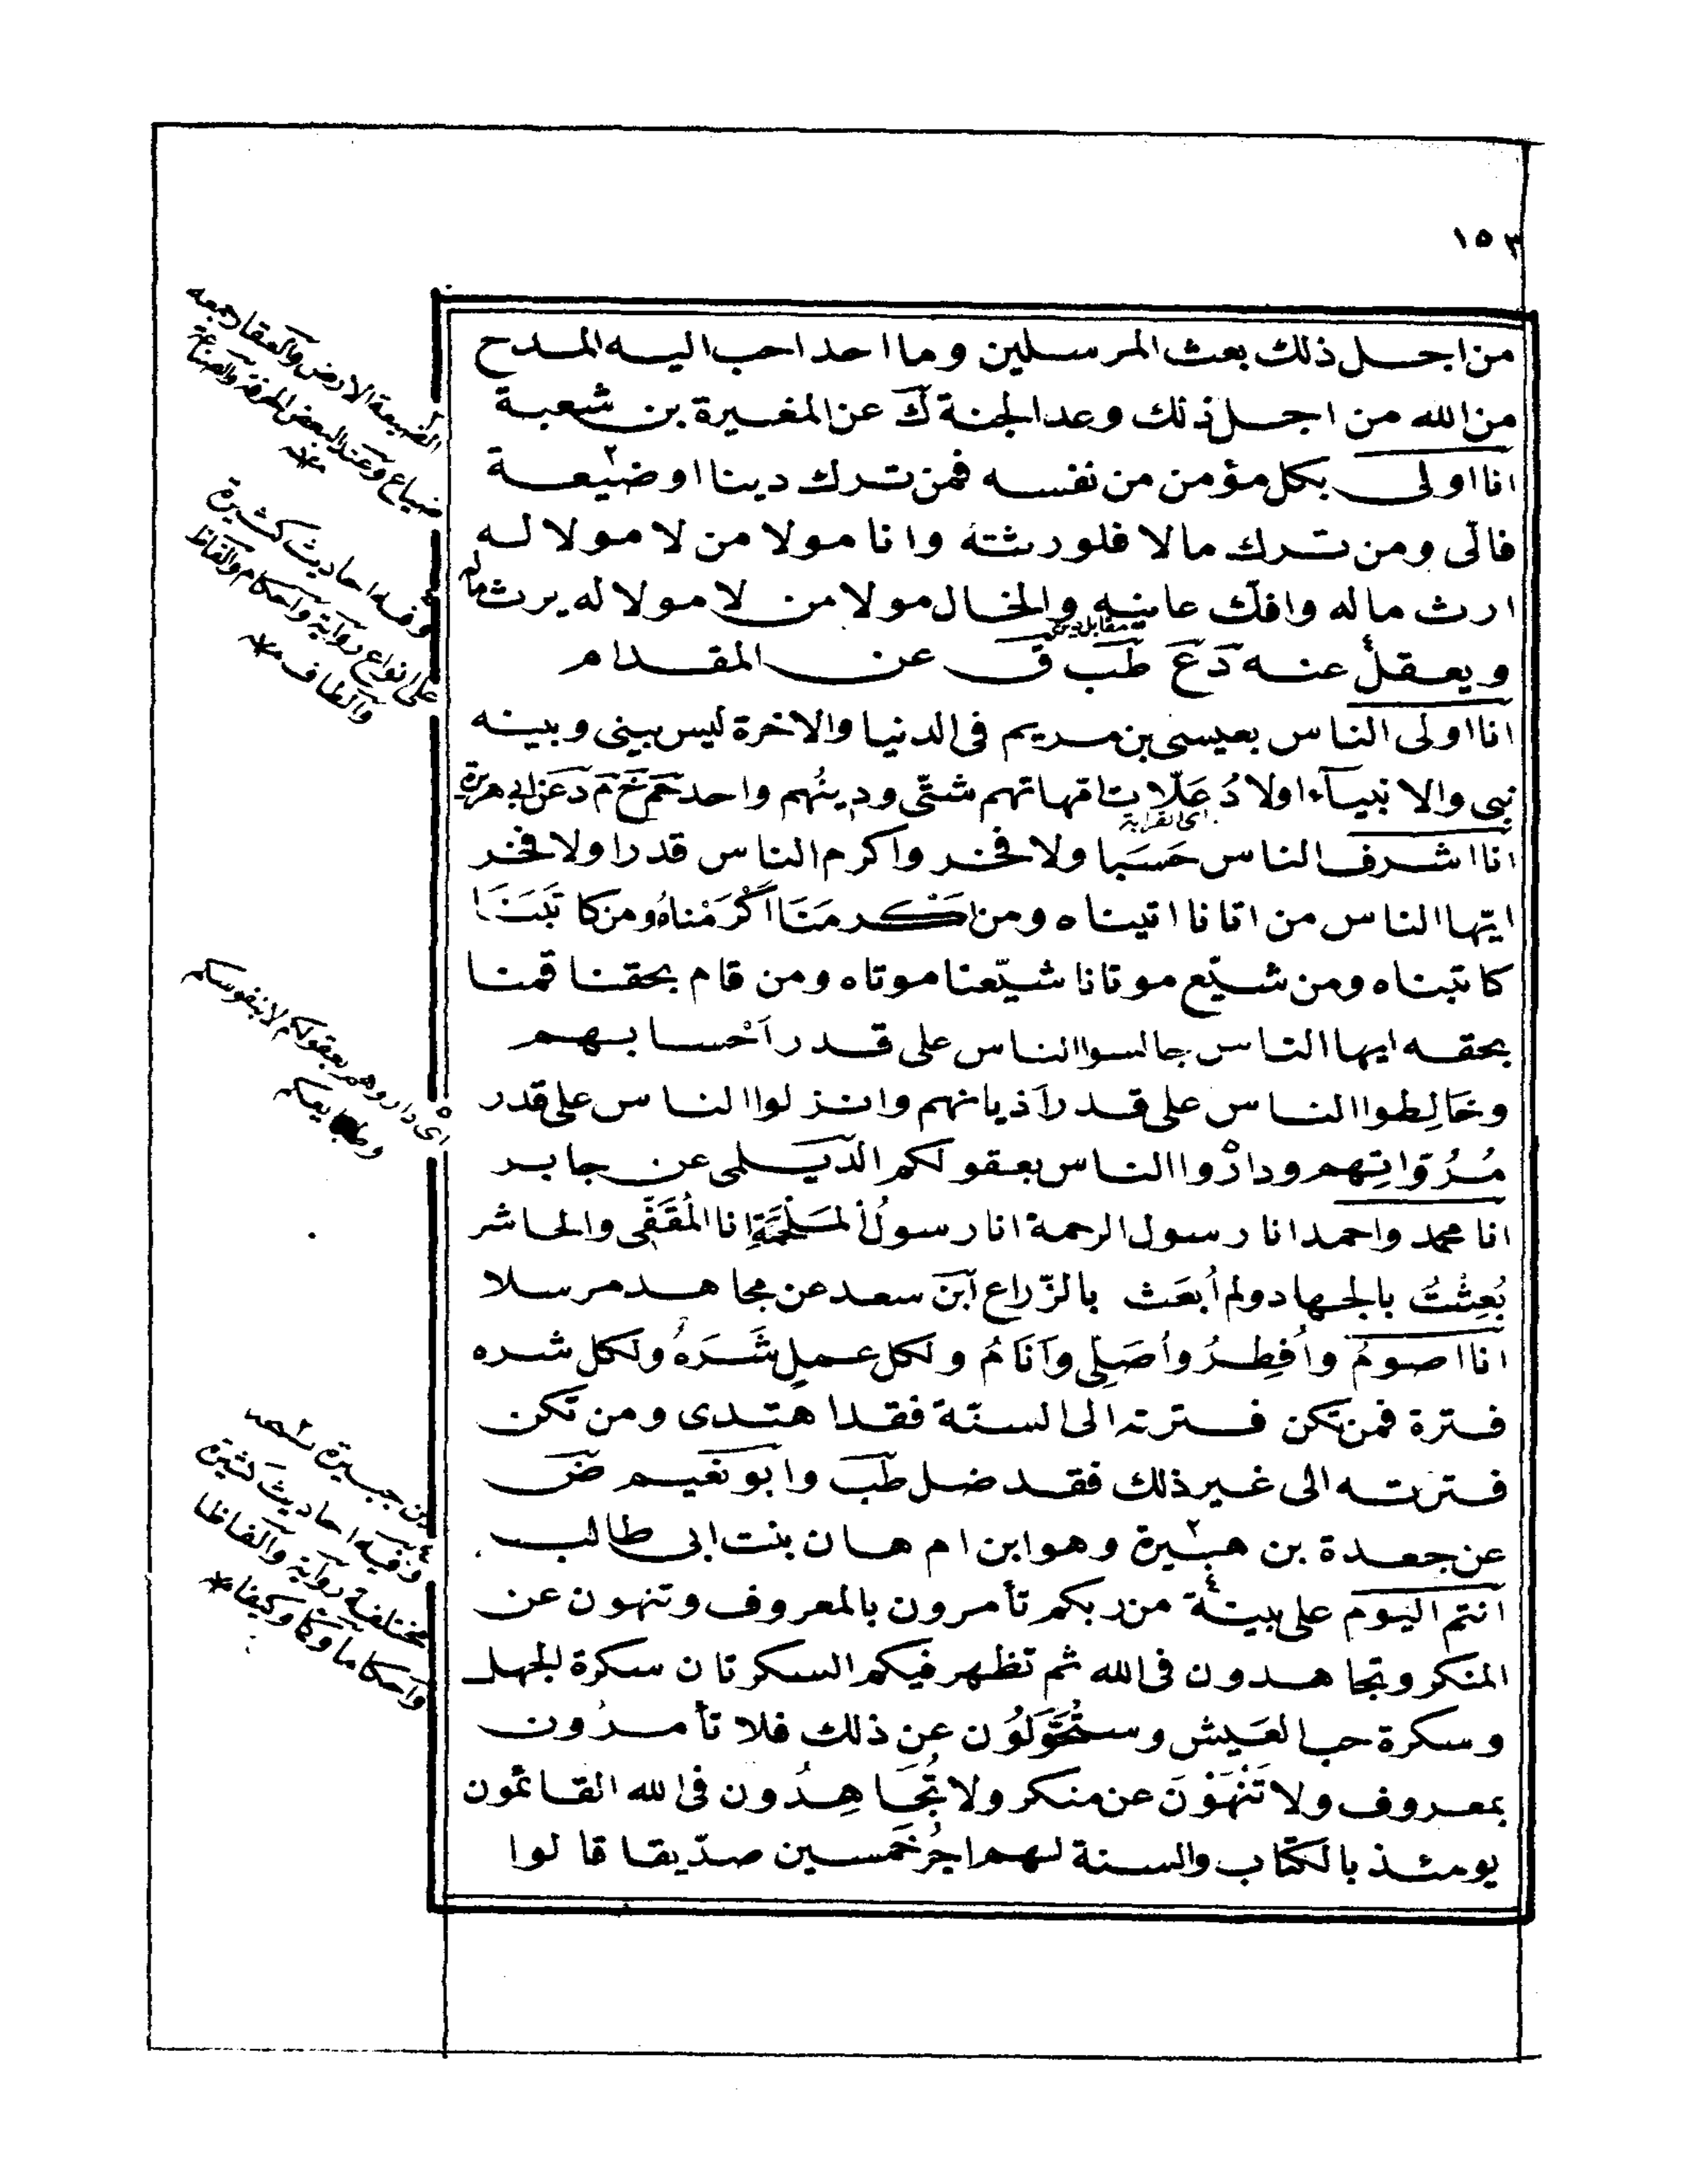 ١٥٣
من اجل ذلك بعث المرسلين وما احد احب اليه المدح
من الله من اجل ذلك وعد الجنة ك عن المغيرة بن شعبة
انا اولى بكل مؤمن من نفسه فمن ترك دينا او ضيعة
فالى ومن ترك مالا فلورثته وانا مولا من لا مولا له
ارث ماله وافك عاينه والخال مولا من لا مولا له يرث ماله
ويعقل عنه د ع طب ق عن المقدام
انا اولى الناس بعيسى بن مريم فى الدنيا والاخرة ليس بينى وبينه
نبى والانبيآء اولادُ عَلّات امهاتهم شتّى ودينُهم واحد حم خ م د عن ابى هريرة
اى القرابة
انا اشرف الناس حَسَبا ولا فخر واكرم الناس قدرا ولا فخر
ايّها الناس من اتانا اتيناه ومن اَكْرمَنَا اَكْرَمْناهُ ومن كاتَبَنَا
كاتبناه ومن شيّع موتانا شيّعنا موتاه ومن قام بحقنا قمنا
بحقه ايها الناس جالسوا الناس على قدر اَحْسابهم
وخَالِطوا الناس على قدر اَديانهم وانزلوا الناس على قدر
مُرُوّاتِهم ودارْوا الناس بعقولكم الدَّيلمى عن جابر
انا محمد واحمد انا رسول الرحمة انا رسولُ الْمَلْحَمَةِ انا المُقَفّى والحاشر
بُعِثْتُ بالجهاد ولم اُبعَث بالزّراع ابن سعد عن مجاهد مرسلا
انا اصومُ واُفطِرُ واُصَلِّى واَنَامُ ولكل عملٍ شَرَهٌ ولكل شره
فترة فمن تكن فترته الى السنّة فقد اهتدى ومن تكن
فترته الى غير ذلك فقد ضل طب وابو نعيم ض
عن جعدة بن هبيرة وهو ابن ام هان بنت ابى طالب
انتم اليوم على بينة من ربكم تأمرون بالمعروف وتنهون عن
المنكر وتجاهدون فى الله ثم تظهر فيكم السكرتان سكرة الجهل
وسكرة حب العَيش وستُحَّوَلوُن عن ذلك فلا تأمرُون
بمعروف ولا تَنْهَوْنَ عن منكر ولا تُجَاهِدُون فى الله القائمون
يومئذ بالكتاب والسنة لهم اجرُ خَمسين صدّيقا قالوا
الضيعة الارض والعقار جمعه
ضياع وعند البعض الحرفة والصناعة
وفيه احاديث كثيرة
على انواع رواية واحكام والفاظ
والطاف
اى داروهم بعقولكم لا بنفوسكم
وطبايعكم
وفيه احاديث كثيرة
مختلفة رواية والفاظا
واحكاما وكما وكيفا